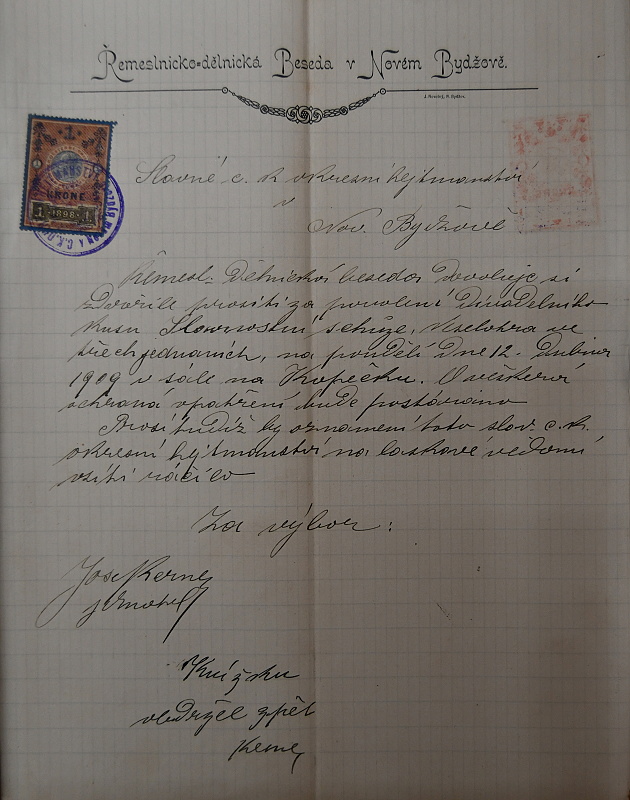 Řemeslnicko-dělnická Beseda v Novém Bydžově.
1
KRONE
1 1898 1
Slavné c. k. okresní hejtmanství
v
Nov. Bydžově
Řemesl. Dělnická beseda dovoluje si
zdvořile prositi za povolení Divadelního
kusu Slavnostní schůze, Veselohra ve
třech jednáních, na pondělí Dne 12. Dubna
1909 v sále na Kopečku. O veškerá
ochraná opatření bude postaráno
Prosí tudíž by oznamení toto slav. c. k.
okresní hejtmanství na laskavé vědomí
vzíti ráčilo
Za výbor:
Jos. Kerne
Knížku
obdržel zpět
Kerne